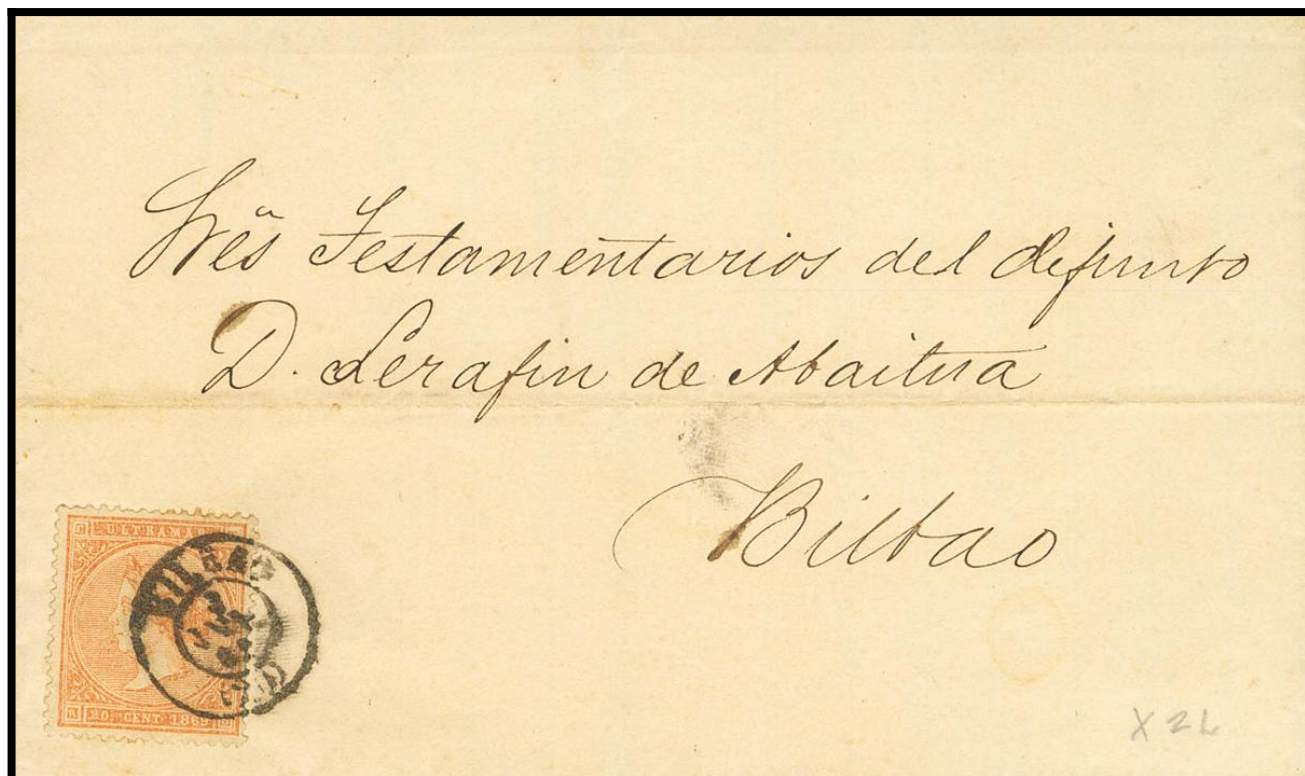 Sres Testamentarios del difunto
D. Serafin de Abaitua
Bilbao
ULTRAMAR
20. CENT 1869
BILBAO
X 2L